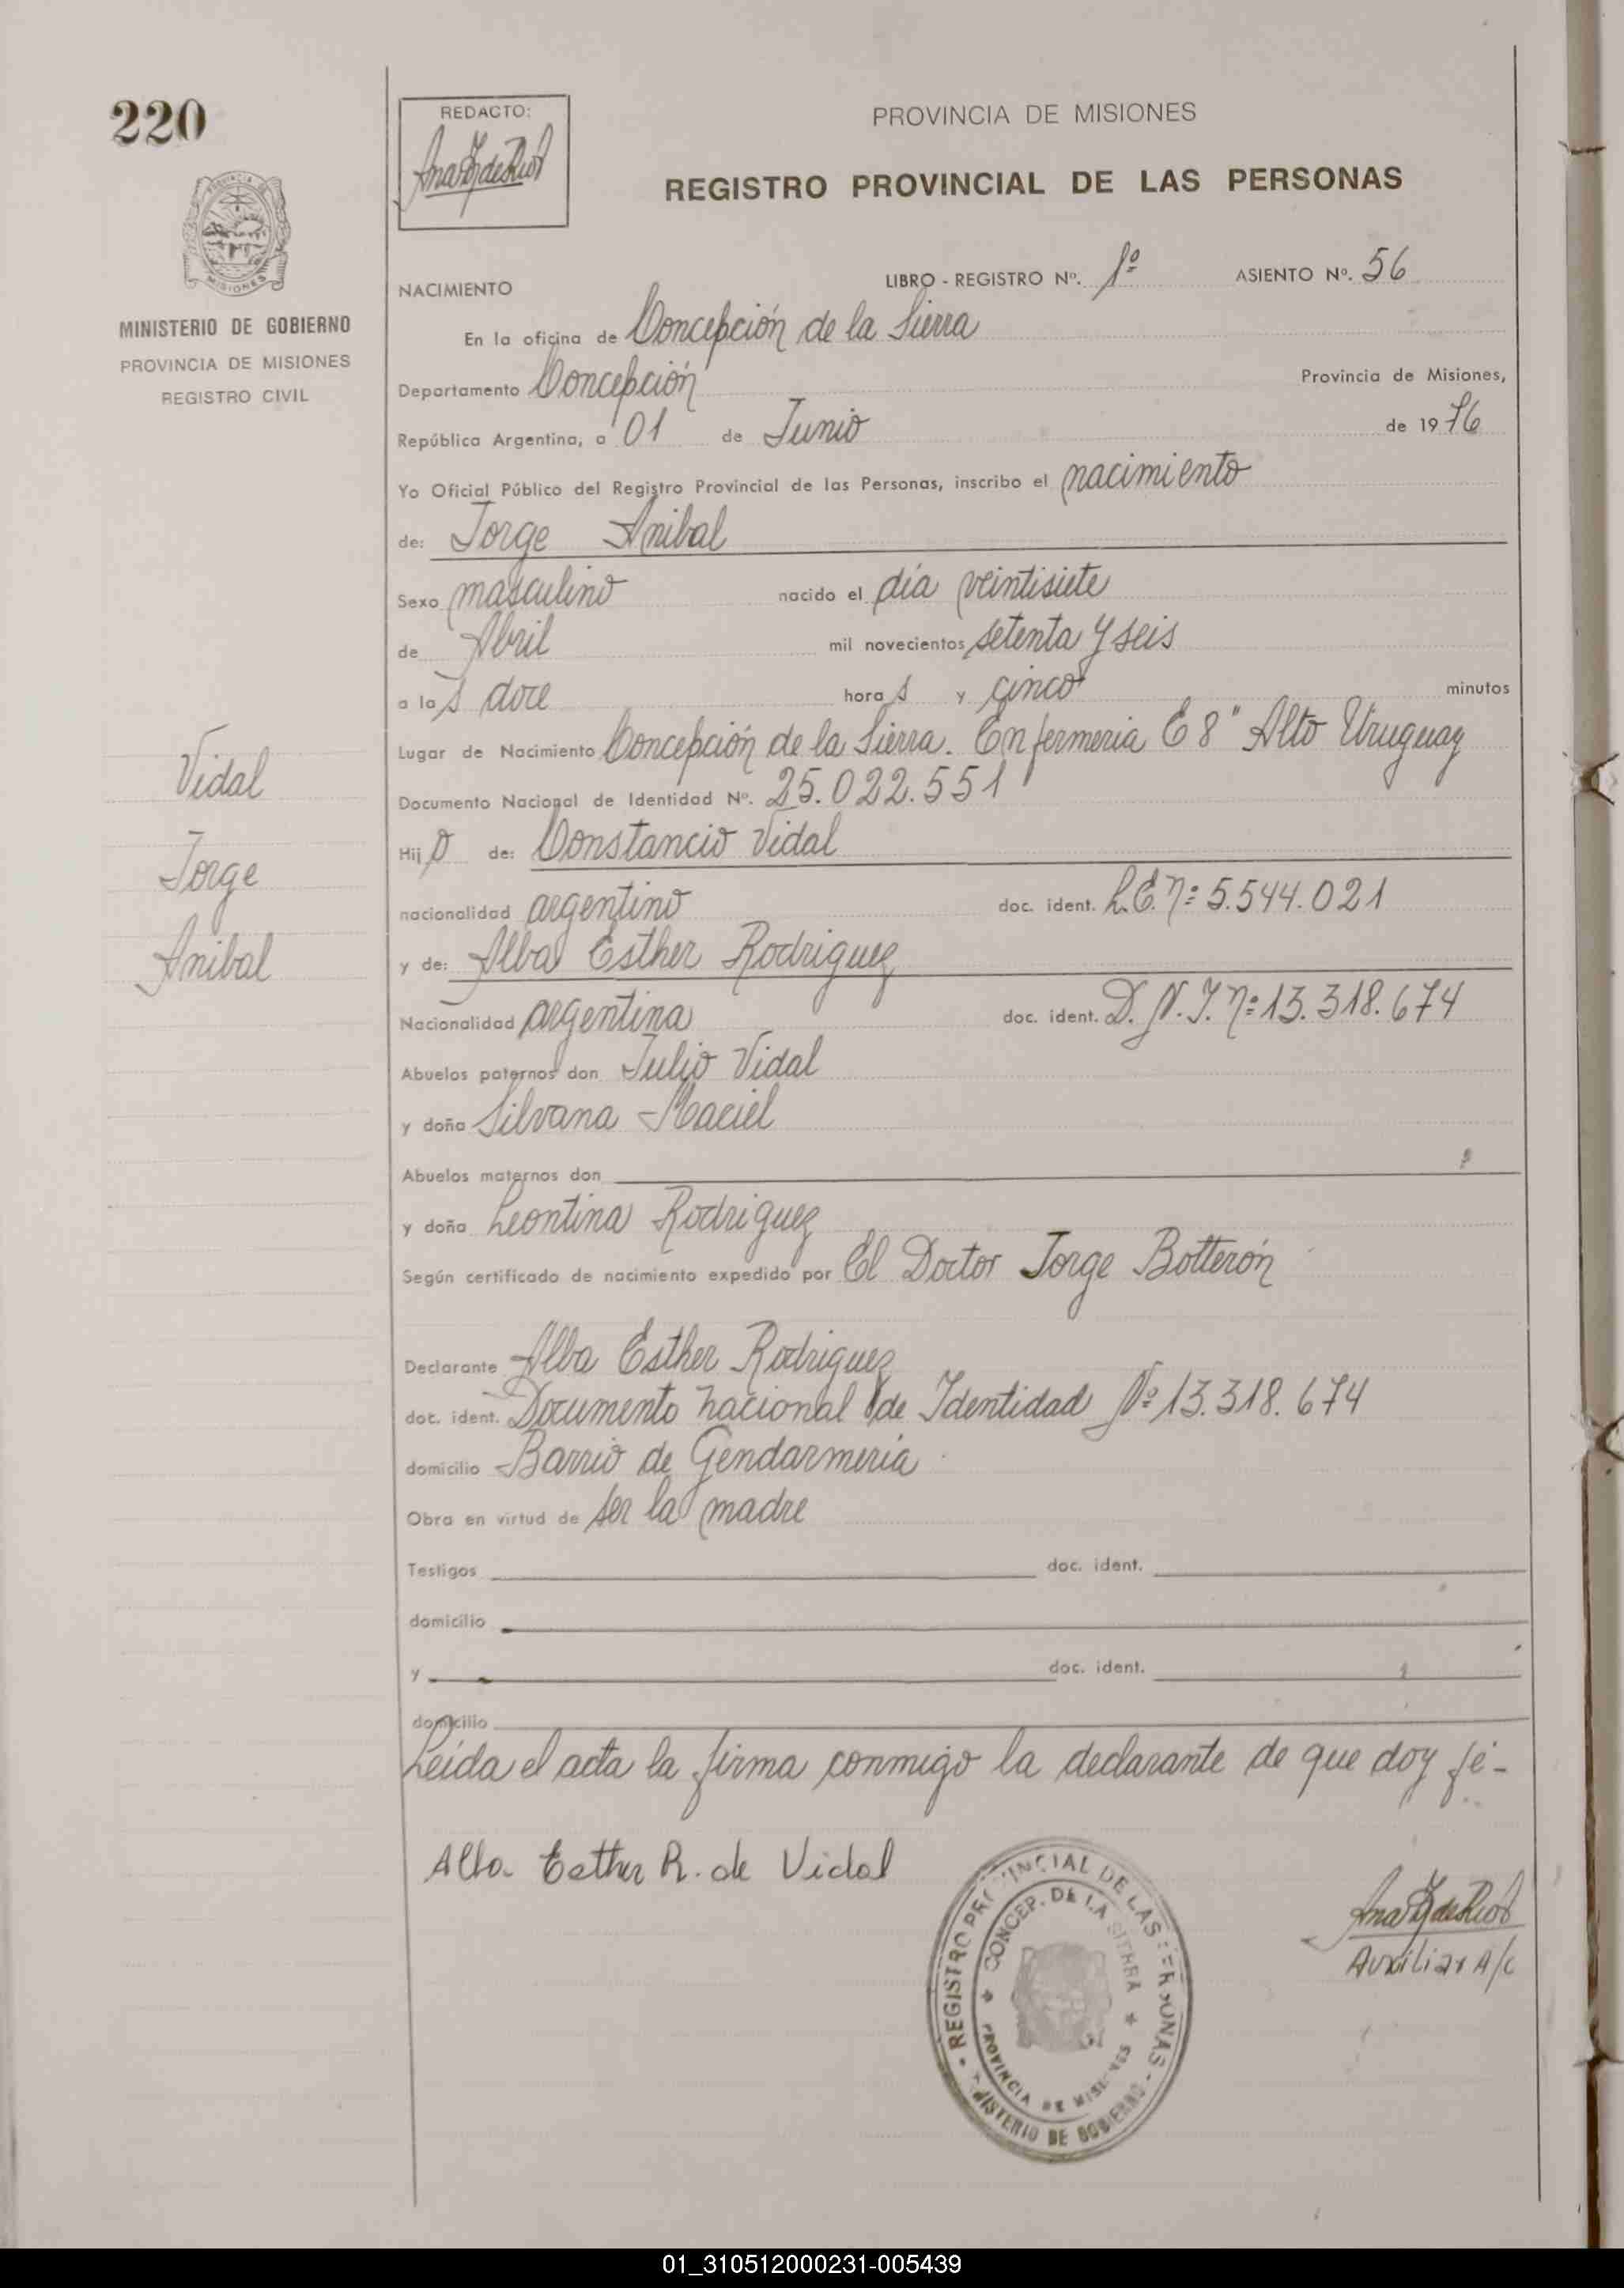 220
REDACTO:
PROVINCIA DE MISIONES
REGISTRO PROVINCIAL DE LAS PERSONAS
MINISTERIO DE GOBIERNO
PROVINCIA DE MISIONES
REGISTRO CIVIL
NACIMIENTO
LIBRO - REGISTRO Nº. 1º ASIENTO Nº. 56
En la oficina de Concepción de la Sierra
Departamento Concepción Provincia de Misiones,
República Argentina, a 01 de Junio de 1976
Yo Oficial Público del Registro Provincial de las Personas, inscribo el nacimiento
de: Jorge Anibal
Sexo masculino nacido el día veintisiete
de Abril mil novecientos setenta y seis
a las doce horas y cinco minutos
Lugar de Nacimiento Concepción de la Sierra. Enfermeria E 8" Alto Uruguay
Documento Nacional de Identidad Nº. 25.022.551
Hijo de: Constancio Vidal
nacionalidad argentino doc. ident. L.E. nº 5.544.021
y de: Alba Esther Rodriguez
Nacionalidad argentina doc. ident. D.N.I. nº 13.318.674
Abuelos paternos don Julio Vidal
y doña Silvana Maciel
Abuelos maternos don
y doña Leontina Rodriguez
Según certificado de nacimiento expedido por El Doctor Jorge Botterón
Declarante Alba Esther Rodriguez
doc. ident. Documento nacional de Identidad Nº 13.318.674
domicilio Barrio de Gendarmeria
Obra en virtud de ser la madre
Testigos doc. ident.
domicilio
y doc. ident.
domicilio
Leída el acta la firma conmigo la declarante de que doy fé-
Vidal
Jorge
Anibal
Alba Esther R. de Vidal
REGISTRO PROVINCIAL DE LAS PERSONAS
CONCEP. DE LA SIERRA
PROVINCIA DE MISIONES
MINISTERIO DE GOBIERNO
Auxiliar A/C
01_310512000231-005439